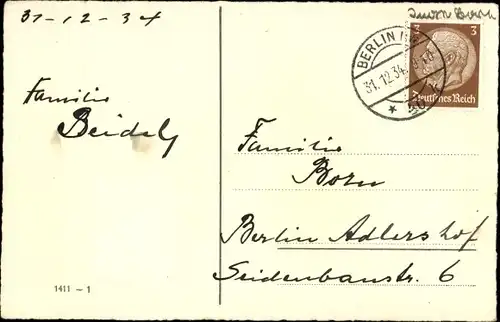 31-12-34
Familie
Beidel
3 3
Deutsches Reich
BERLIN
31.12.34
Familie
Born
Berlin Adlershof
Seidenbaustr. 6
1411 - 1